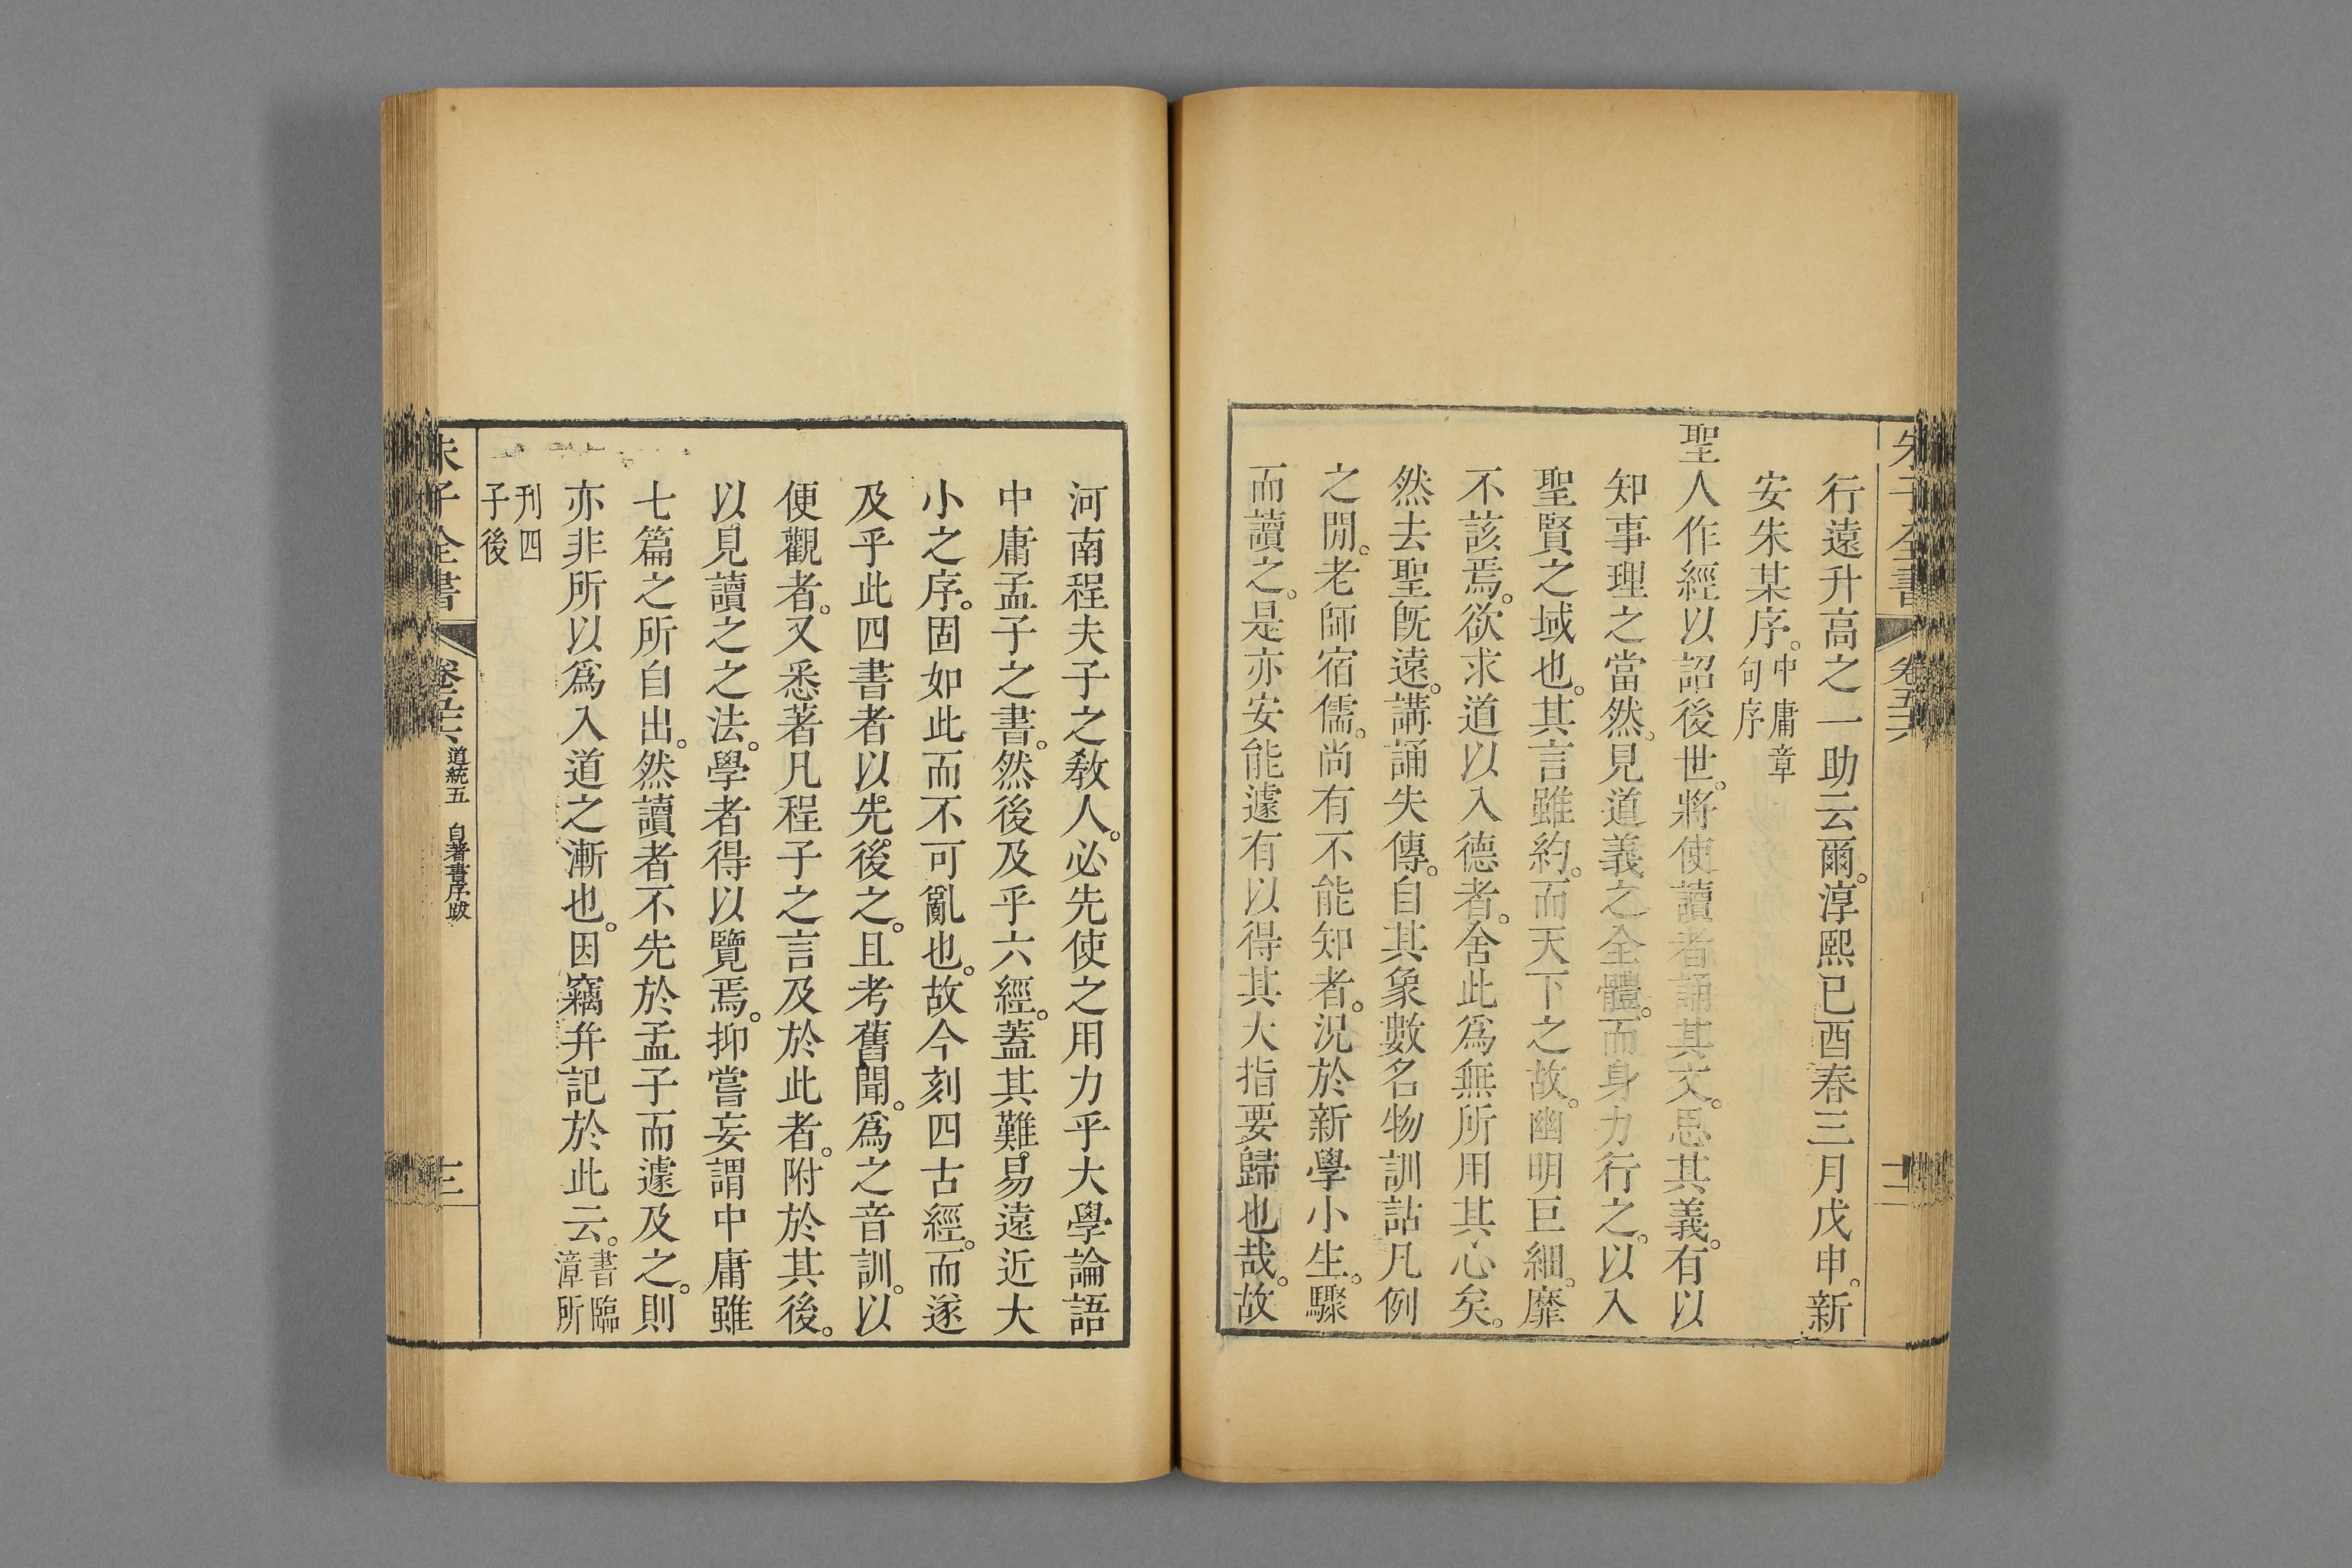 行遠升高之一助云爾。淳熙已酉春三月戊申。新
安朱某序。中庸章
句序
聖人作經以詔後世。將使讀者誦其文。思其義。有以
知事理之當然。見道義之全體。而身力行之。以入
聖賢之域也。其言雖約。而天下之故。幽明巨細。靡
不該焉。欲求道以入德者。舍此為無所用其心矣。
然去聖旣遠。講誦失傳。自其象數名物訓詁凡例
之閒。老師宿儒。尚有不能知者。況於新學小生。驟
而讀之。是亦安能遽有以得其大指要歸也哉。故
河南程夫子之敎人。必先使之用力乎大學論語
中庸孟子之書。然後及乎六經。蓋其難易遠近大
小之序。固如此而不可亂也。故今刻四古經。而遂
及乎此四書者以先後之。且考舊聞。爲之音訓。以
便觀者。又悉著凡程子之言及於此者。附於其後。
以見讀之之法。學者得以覽焉。抑嘗妄謂中庸雖
七篇之所自出。然讀者不先於孟子而遽及之。則
亦非所以爲入道之漸也。因竊幷記於此云。書臨
漳所
刊四
子後
朱子全書
卷五十六
道統五 自著書序跋